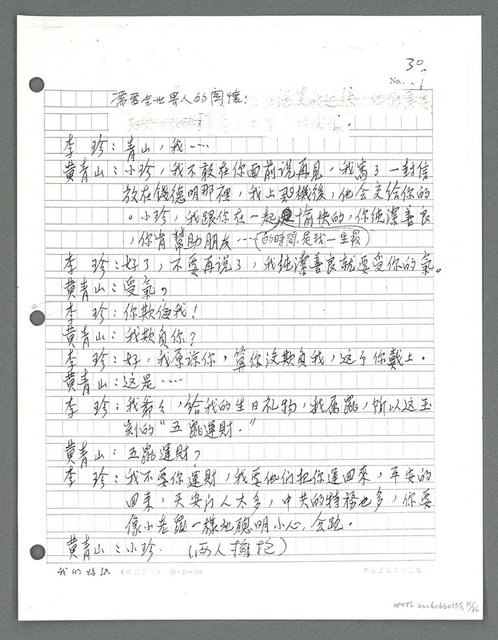 30.
No.
需要全世界人的關懷！
李　珍：青山，我⋯⋯
黃青山：小珍，我不敢在你面前说再見，我寫了一封信
放在錢德明那裡，我上飛機後，他会交给你的
。小珍，我跟你在一起的時間，是我一生最愉快的，你純潔善良
，你肯幫助朋友⋯⋯
李　珍：好了，不要再说了，我純潔善良就要受你的氣。
黃青山：受氣？
李　珍：你欺侮我！
黃青山：我欺負你？
李　珍：好，我原諒你，算你没欺負我，这个你戴上。
黃青山：这是⋯⋯
李　珍：我爺々，给我的生日礼物，我属鼠，所以这玉
刻的“五鼠運財。”
黃青山：五鼠運財？
李　珍：我不要你運財，我要他们把你運回來，平安的
回來，天安门人太多，中共的特務也多，你要
像小老鼠一樣地聰明小心，会跑。
黃青山：小珍　（両人擁抱）
我的稿紙
NMTL 20060660155, 31/36